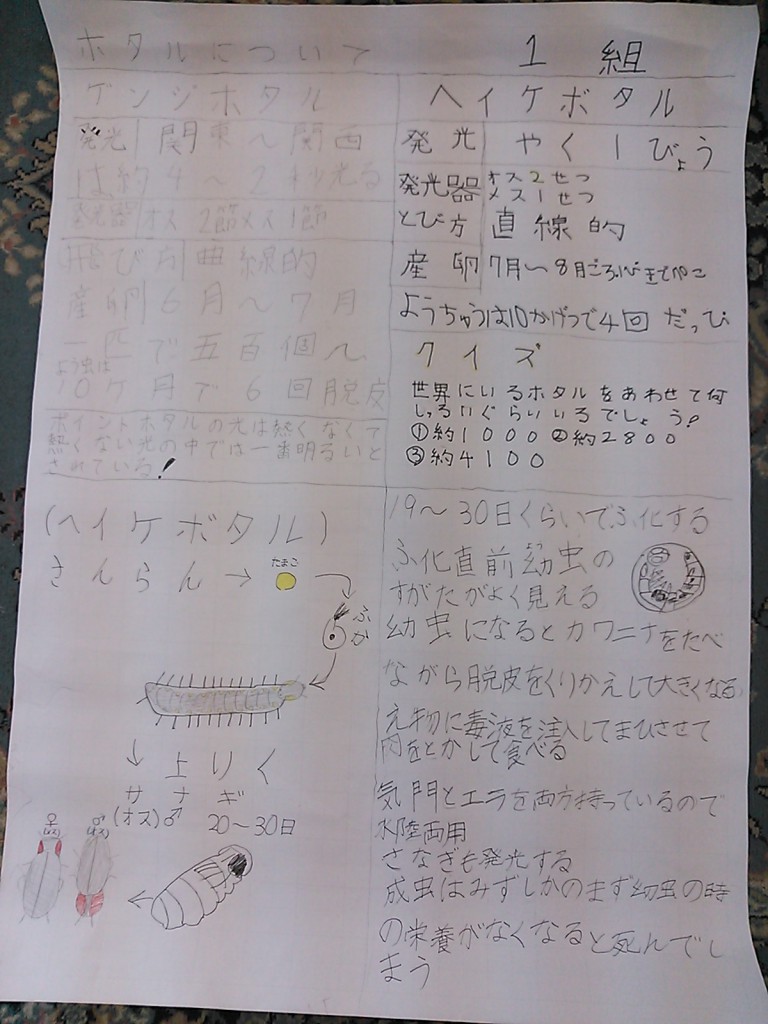 ホタルについて
1組
ゲンジホタル
発光 関東～関西
は約4～2秒光る
発光器 オス2節メス1節
飛び方 曲線的
産卵 6月～7月
一匹で五百個～
よう虫は
10ヶ月で6回脱皮
ポイントホタルの光は熱くなくて
熱くない光の中では一番明るいと
されている!
ヘイケボタル
発光 やく1びょう
発光器 オス2せつ
メス1せつ
とび方 直線的
産卵 7月～8月ごろ
ようちゅうは10かげつで4回だっぴ
クイズ
世界にいるホタルをあわせて何
しゅるいぐらいいるでしょう?
①約1000 ②約2800
③約4100
(ヘイケボタル)
さんらん→
たまご
ふか
↓上りく
サナギ
(オス)♂ 20～30日
♀
♂
19～30日くらいでふ化する
ふ化直前幼虫の
すがたがよく見える
幼虫になるとカワニナをたべ
ながら脱皮をくりかえして大きくなる
え物に毒液を注入してまひさせて
肉をとかして食べる
気門とエラを両方持っているので
水陸両用
さなぎも発光する
成虫はみずしかのまず幼虫の時
の栄養がなくなると死んでし
まう